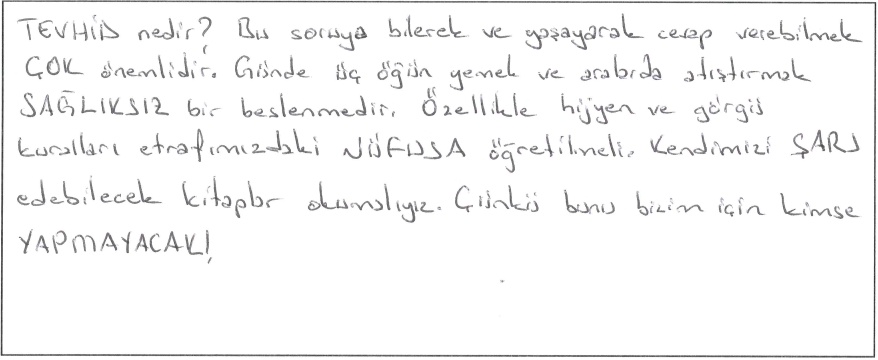 TEVHİD nedir? Bu soruya bilerek ve yaşayarak cevap verebilmek
ÇOK önemlidir. Günde üç öğün yemek ve arabıda atıştırmak
SAĞLIKSIZ bir beslenmedir. Özellikle hijyen ve görgü
kuralları etrafımızdaki NÜFUSA öğretilmeli. Kendimizi ŞARJ
edebilecek kitaplar okumalıyız. Çünkü bunu bizim için kimse
YAPMAYACAK!